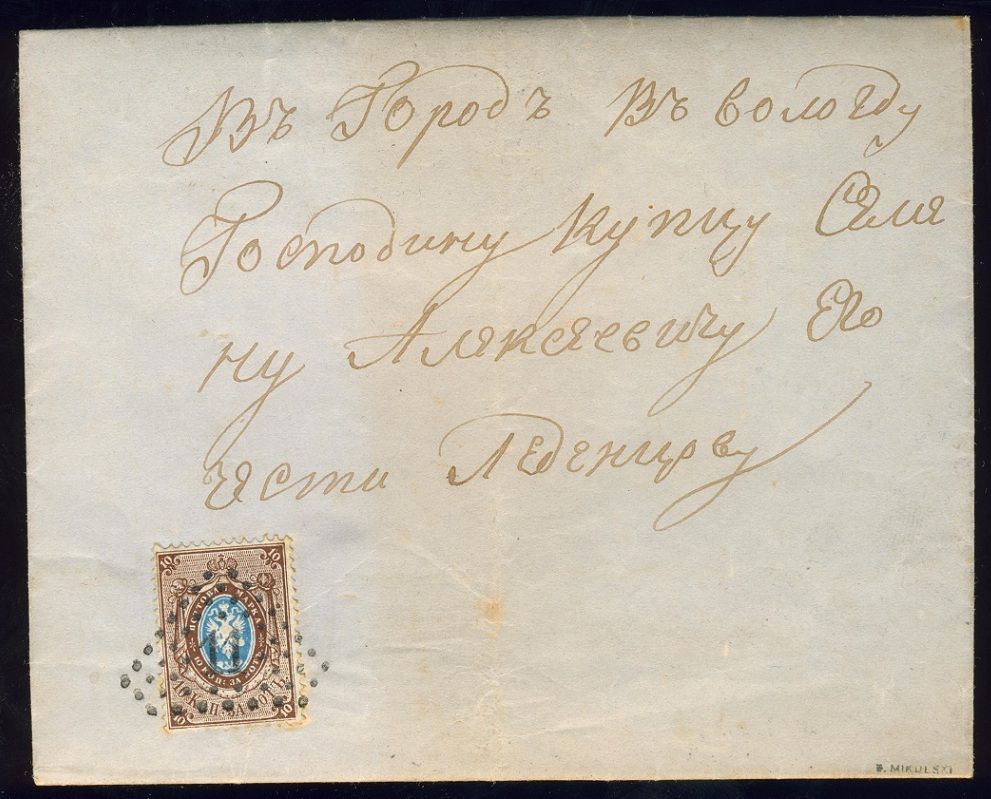 Въ Городъ Въ вологду
Господину Купцу Семе
ну Алексеевичу Его
чести Леденцову
10 10
ПОЧТОВАЯ МАРКА
10 КОП: ЗА ЛОТЪ
11
10 КОП: ЗА ЛОТЪ
10 10
B. MIKULSKI